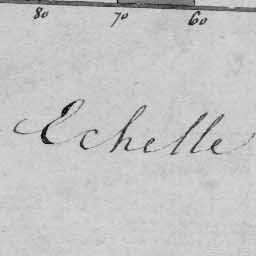 80 70 60
Echelle